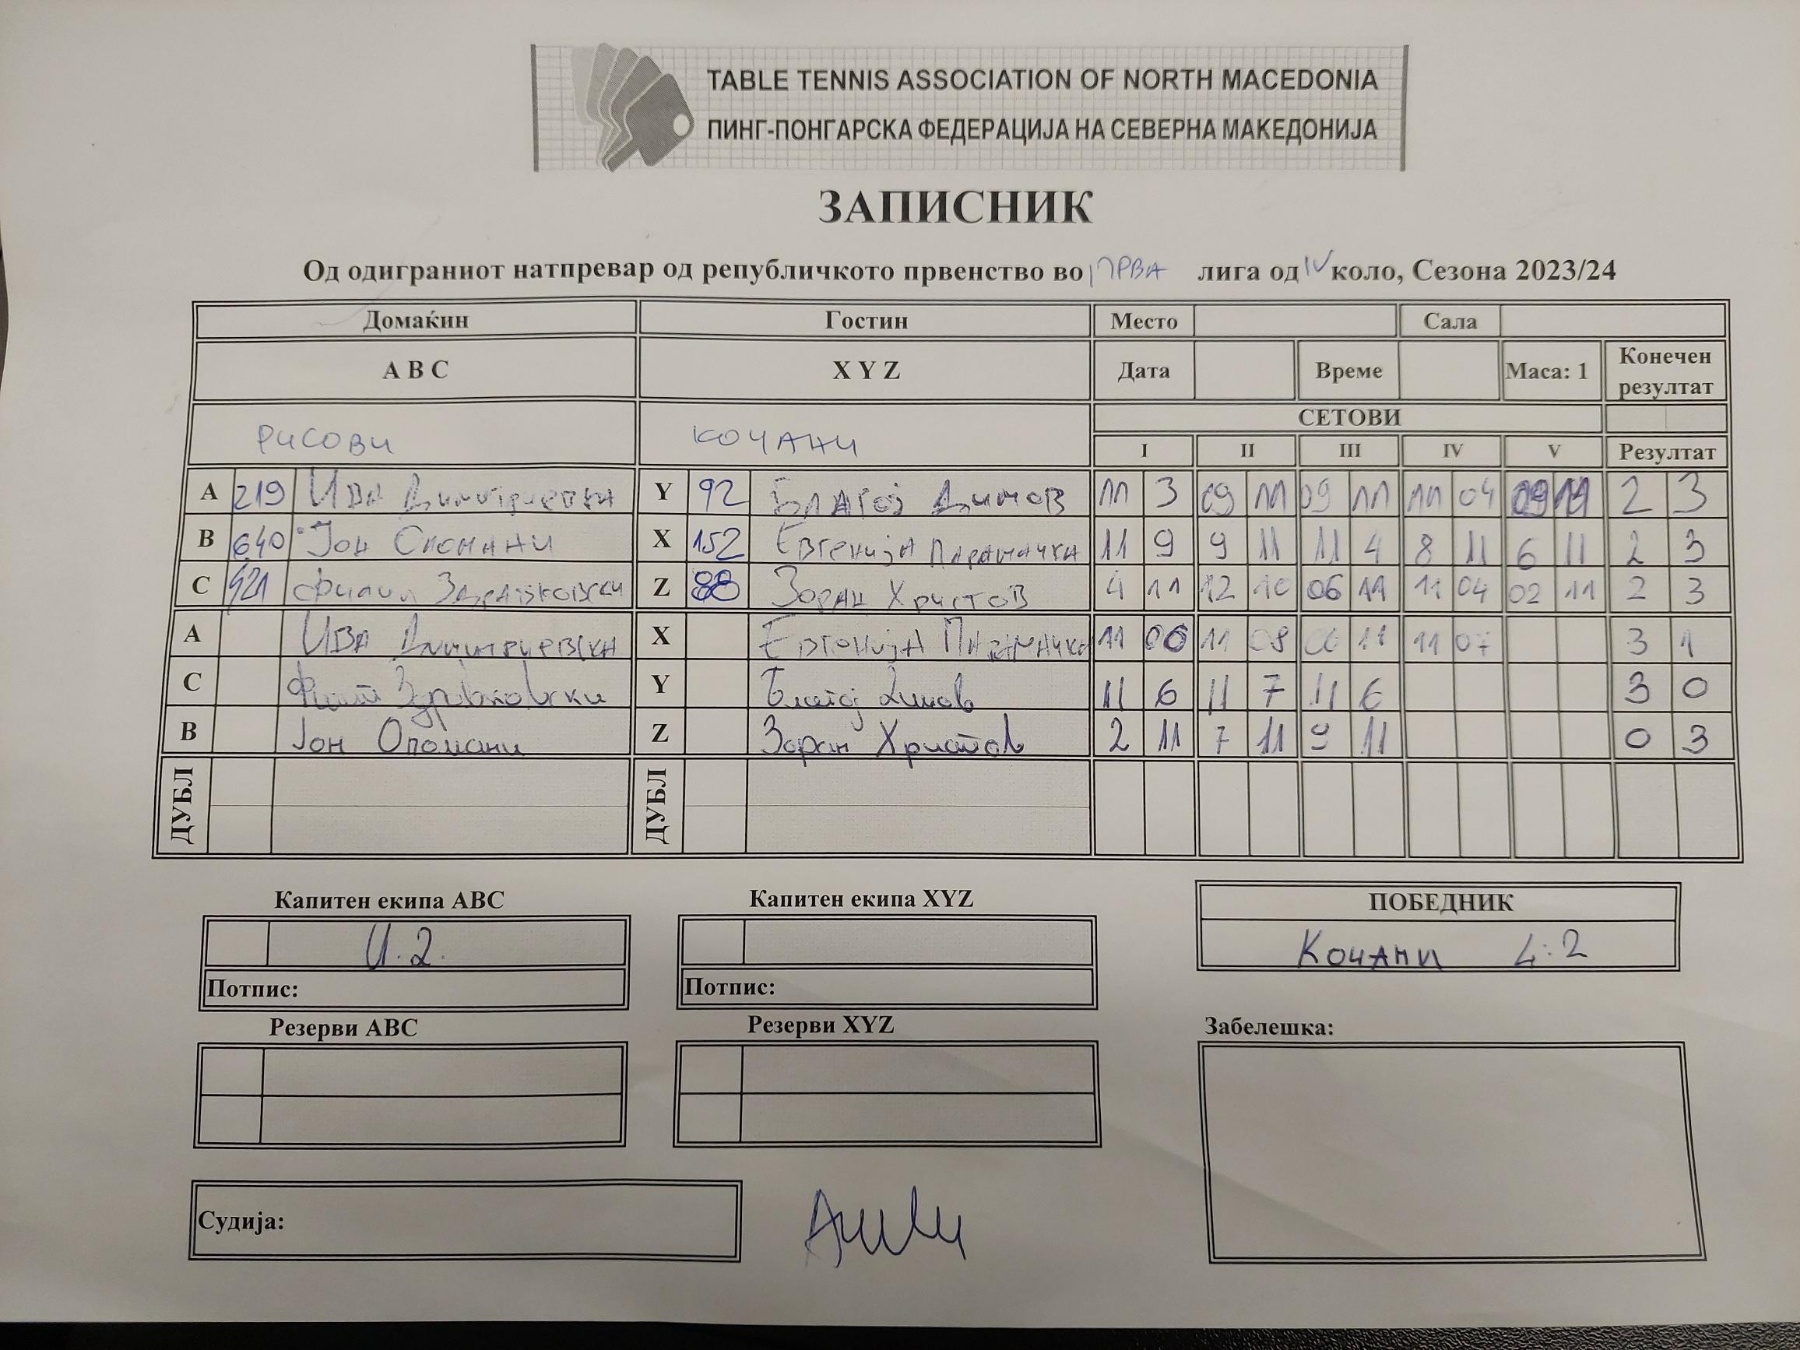 TABLE TENNIS ASSOCIATION OF NORTH MACEDONIA
ПИНГ-ПОНГАРСКА ФЕДЕРАЦИЈА НА СЕВЕРНА МАКЕДОНИЈА
ЗАПИСНИК
Од одиграниот натпревар од републичкото првенство во ПРВА лига од IV коло, Сезона 2023/24
Домаќин Гостин Место Сала
A B C X Y Z Дата Време Маса: 1 Конечен резултат
СЕТОВИ
РИСОВИ КОЧАНИ I II III IV V Резултат
A 219 ИВА Димитриевска Y 92 БЛАГОЈ ДИМОВ 11 3 09 11 09 11 11 04 09 11 2 3
B 640 ЈОН X 152 ЕВГЕНИЈА 11 9 9 11 11 4 8 11 6 11 2 3
C 521 Филип Здравковски Z 88 ЗОРАН ХРИСТОВ 4 11 12 10 06 11 11 04 02 11 2 3
A ИВА Димитриевска X ЕВГЕНИЈА 11 06 11 08 06 11 11 07 3 1
C Филип Здравковски Y Благој Димов 11 6 11 7 11 6 3 0
B Јон Опомани Z Зоран Христов 2 11 7 11 9 11 0 3
ДУБЛ ДУБЛ
Капитен екипа ABC Капитен екипа XYZ ПОБЕДНИК
И.2. КОЧАНИ 4:2
Потпис: Потпис:
Резерви ABC Резерви XYZ Забелешка:
Судија: